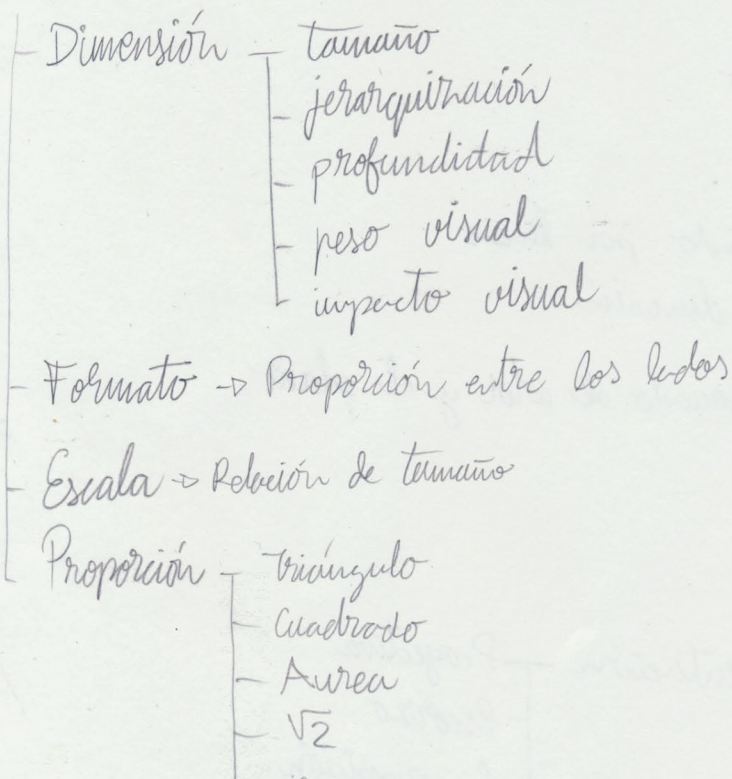 Dimensión - tamaño
- jerarquización
- profundidad
- peso visual
- impacto visual
- Formato → Proporción entre los lados
- Escala → Relación de tamaño
Proporción - triángulo
- Cuadrado
- Aurea
- √2